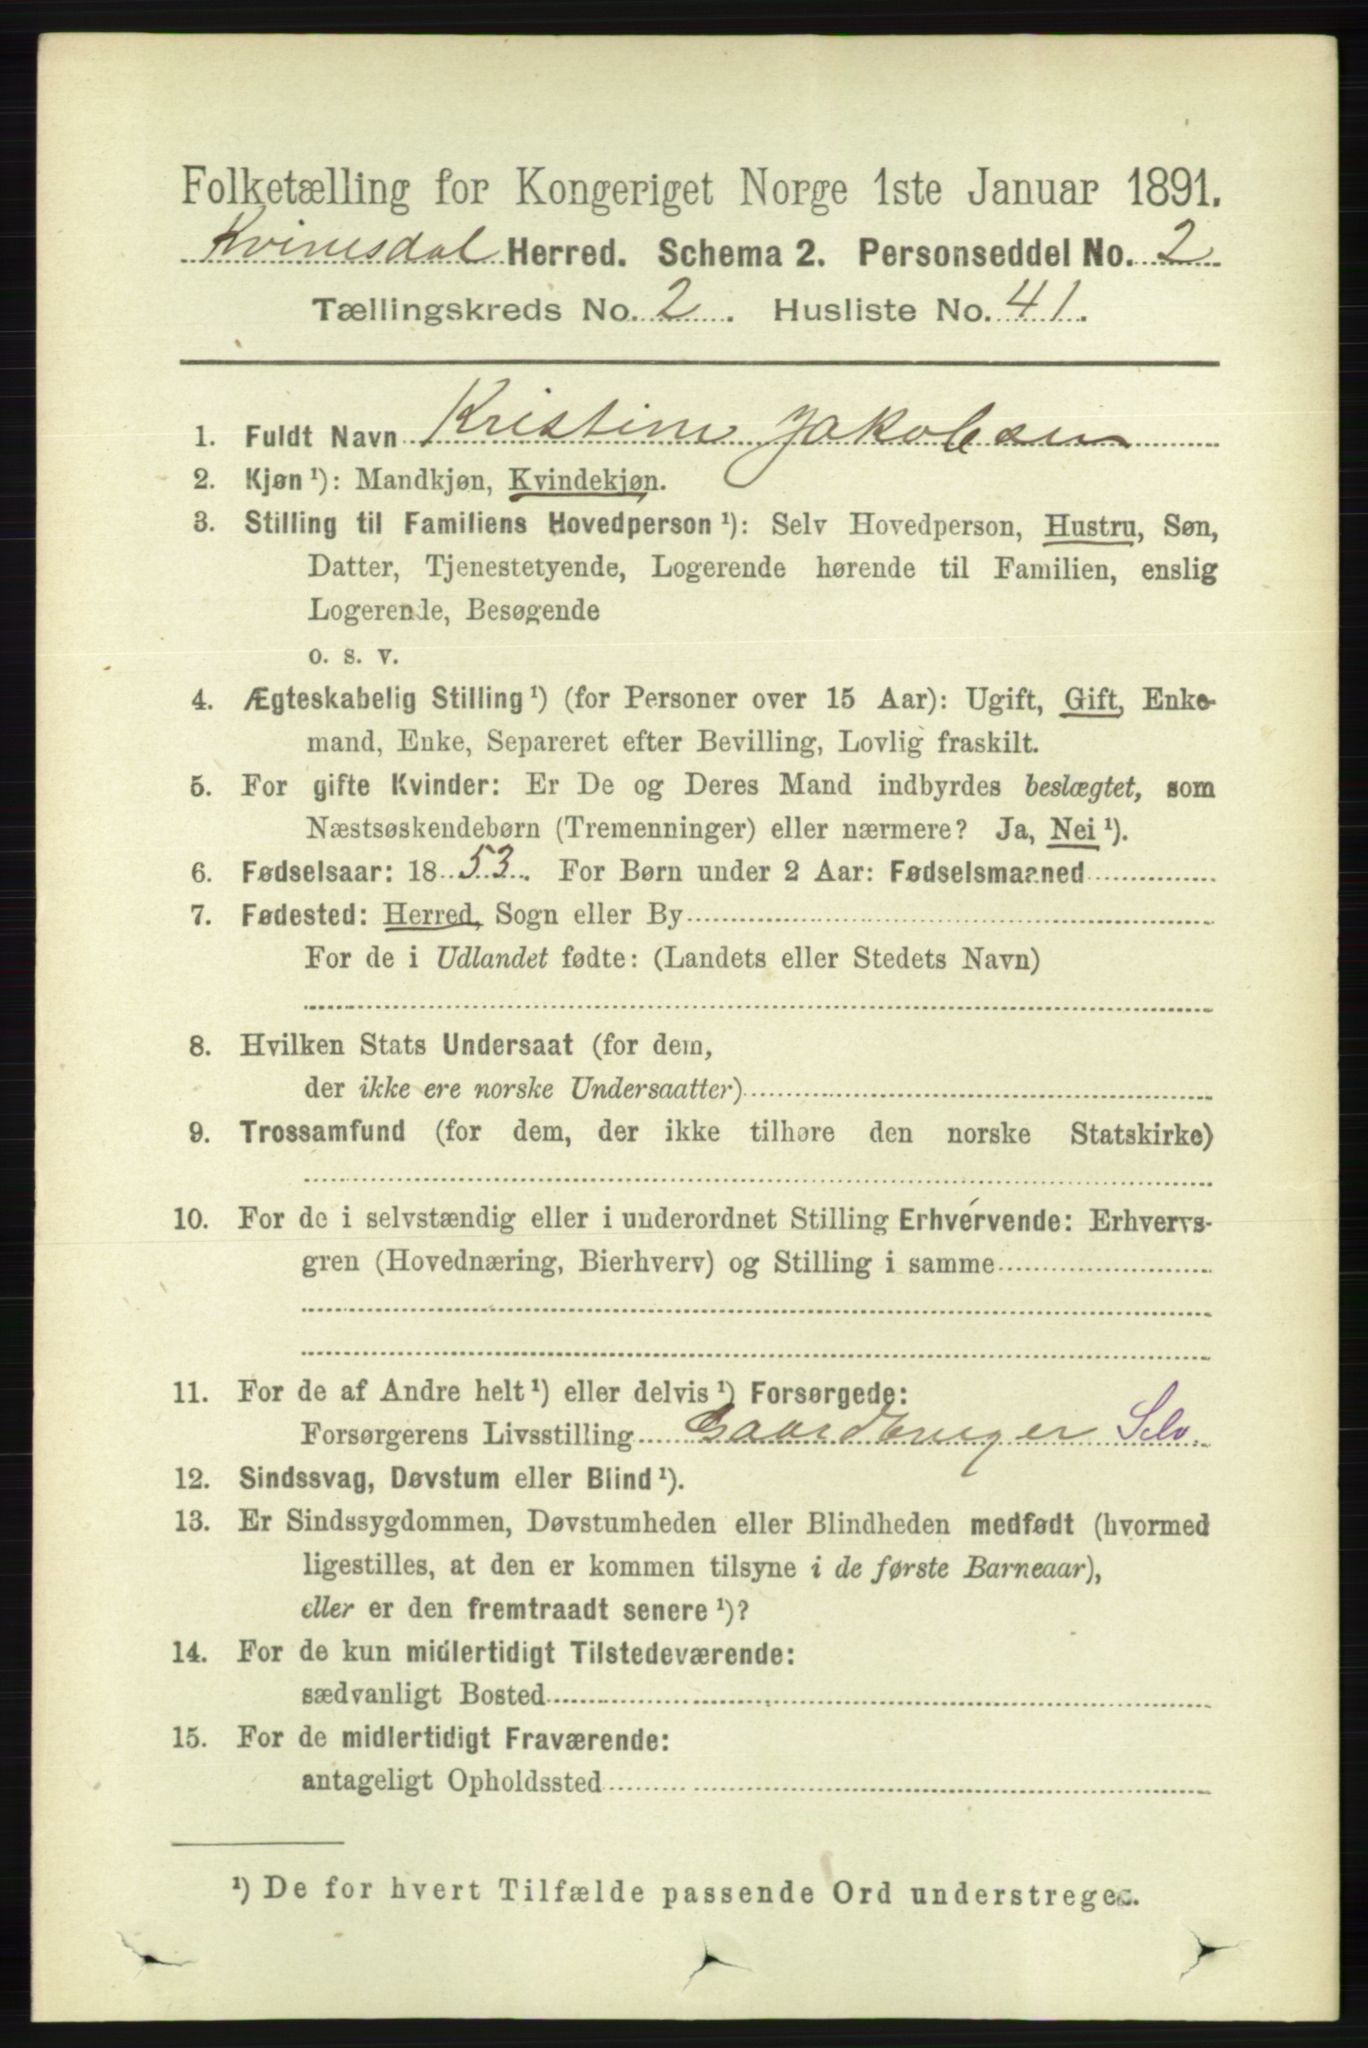 Folketælling for Kongeriget Norge 1ste Januar 1891.
Kvinesdal Herred. Schema 2. Personseddel No. 2
Tællingskreds No. 2. Husliste No. 41.
1. Fuldt Navn Kristine Jakobsen
2. Kjøn ¹): Mandkjøn, Kvindekjøn.
3. Stilling til Familiens Hovedperson ¹): Selv Hovedperson, Hustru, Søn,
Datter, Tjenestetyende, Logerende hørende til Familien, enslig
Logerende, Besøgende
o. s. v.
4. Ægteskabelig Stilling ¹) (for Personer over 15 Aar): Ugift, Gift, Enke-
mand, Enke, Separeret efter Bevilling, Lovlig fraskilt.
5. For gifte Kvinder: Er De og Deres Mand indbyrdes beslægtet, som
Næstsøskendebørn (Tremenninger) eller nærmere? Ja, Nei ¹).
6. Fødselsaar: 1853. For Børn under 2 Aar: Fødselsmaaned
7. Fødested: Herred, Sogn eller By
For de i Udlandet fødte: (Landets eller Stedets Navn)
8. Hvilken Stats Undersaat (for dem,
der ikke ere norske Undersaatter)
9. Trossamfund (for dem, der ikke tilhøre den norske Statskirke)
10. For de i selvstændig eller i underordnet Stilling Erhvervende: Erhvervs-
gren (Hovednæring, Bierhverv) og Stilling i samme
11. For de af Andre helt ¹) eller delvis ¹) Forsørgede:
Forsørgerens Livsstilling Gaardbruger Selv.
12. Sindssvag, Døvstum eller Blind ¹).
13. Er Sindssygdommen, Døvstumheden eller Blindheden medfødt (hvormed
ligestilles, at den er kommen tilsyne i de første Barneaar),
eller er den fremtraadt senere ¹)?
14. For de kun midlertidigt Tilstedeværende:
sædvanligt Bosted
15. For de midlertidigt Fraværende:
antageligt Opholdssted
¹) De for hvert Tilfælde passende Ord understreges.